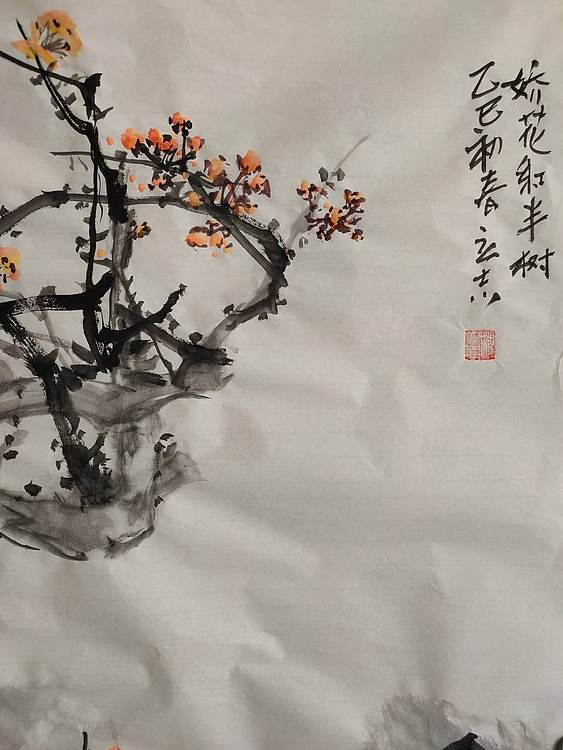 娇花红半树
乙巳初春立吉